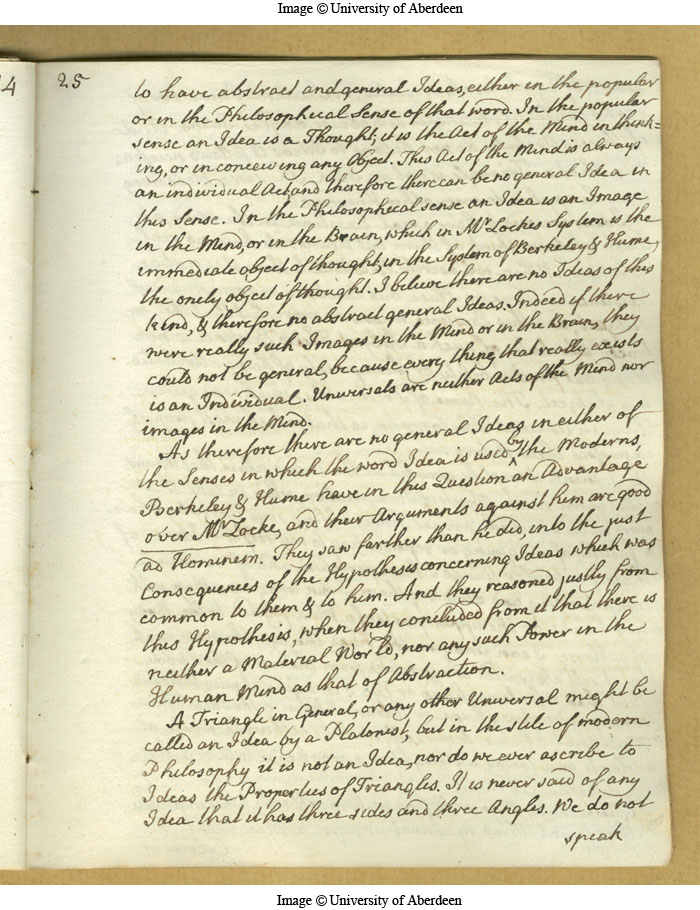 Image © University of Aberdeen
4 25
to have abstract and general Ideas, either in the popular
or in the Philosophical Sense of that word. In the popular
sense an Idea is a Thought; it is the Act of the Mind in think=
ing, or in conceiving any Object. This Act of the Mind is always
an individual Act, and therefore there can be no general Idea in
this Sense. In the Philosophical sense an Idea is an Image
in the Mind, or in the Brain, which in Mr Lockes System is the
immediate object of thought, in the System of Berkeley & Hume,
the onely object of thought. I believe there are no Ideas of this
kind, & therefore no abstract general Ideas. Indeed if there
were really such Images in the Mind or in the Brain, they
could not be general, because every thing that really exists
is an Individual. Universals are neither Acts of the Mind nor
images in the Mind.
As therefore there are no general Ideas in either of
the Senses in which the word Idea is used by the Moderns,
Berkeley & Hume have in this Question an Advantage
over Mr Locke, and their Arguments against him are good
ad Hominem. They saw farther than he did, into the just
Consequences of the Hypothesis concerning Ideas which was
common to them & to him. And they reasoned justly from
this Hypothesis, when they concluded from it that there is
neither a Material World, nor any such Power in the
Human Mind as that of Abstraction.
A Triangle in General, or any other Universal might be
called an Idea by a Platonist, but in the stile of modern
Philosophy it is not an Idea, nor do we ever ascribe to
Ideas the Properties of Triangles. It is never said of any
Idea that it has three sides and three Angles. We do not
speak
Image © University of Aberdeen